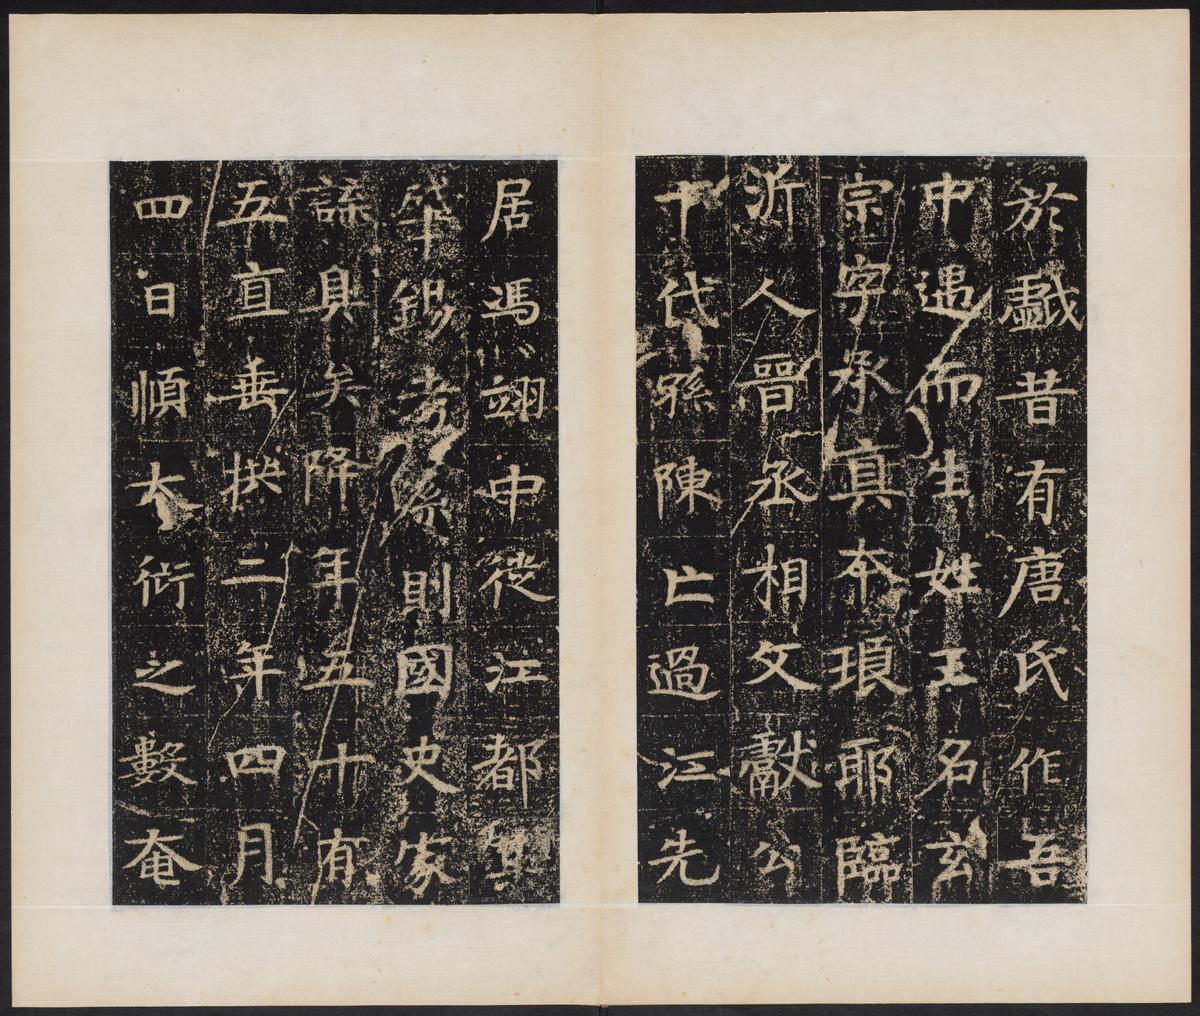 於戲昔有唐氏作吾
中遇而生姓王名玄
宗字承真夲琅耶臨
沂人晉丞相文獻公
十代孫陳亡過江先
居馮翊中徙江都其
肇錫考系則國史家
諜具矣降年五十有
五直垂拱二年四月
四日順大衍之數奄